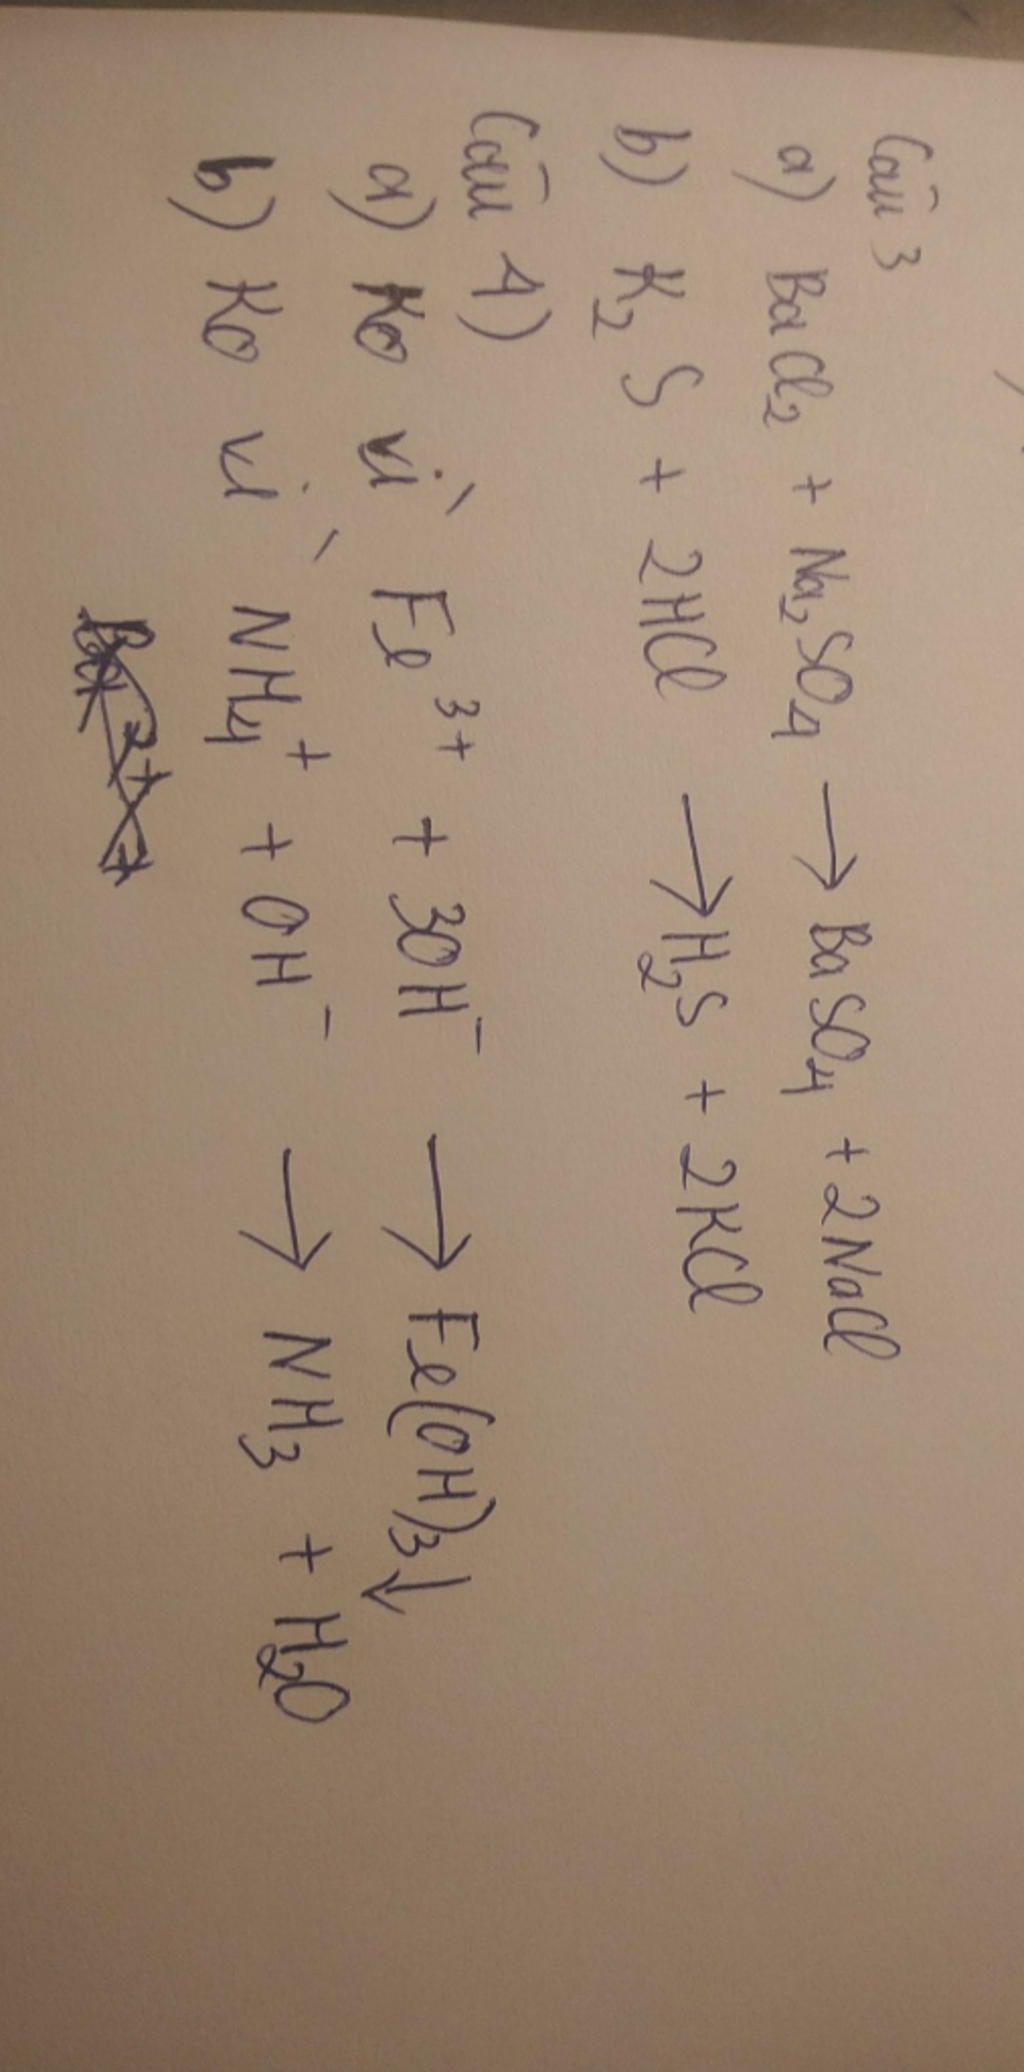 Câu 3
a) BaCl₂ + Na₂SO₄ → BaSO₄ + 2NaCl
b) K₂S + 2HCl → H₂S + 2KCl
Câu 4)
a) Ko vì Fe³⁺ + 3OH⁻ → Fe(OH)₃↓
b) Ko vì NH₄⁺ + OH⁻ → NH₃ + H₂O